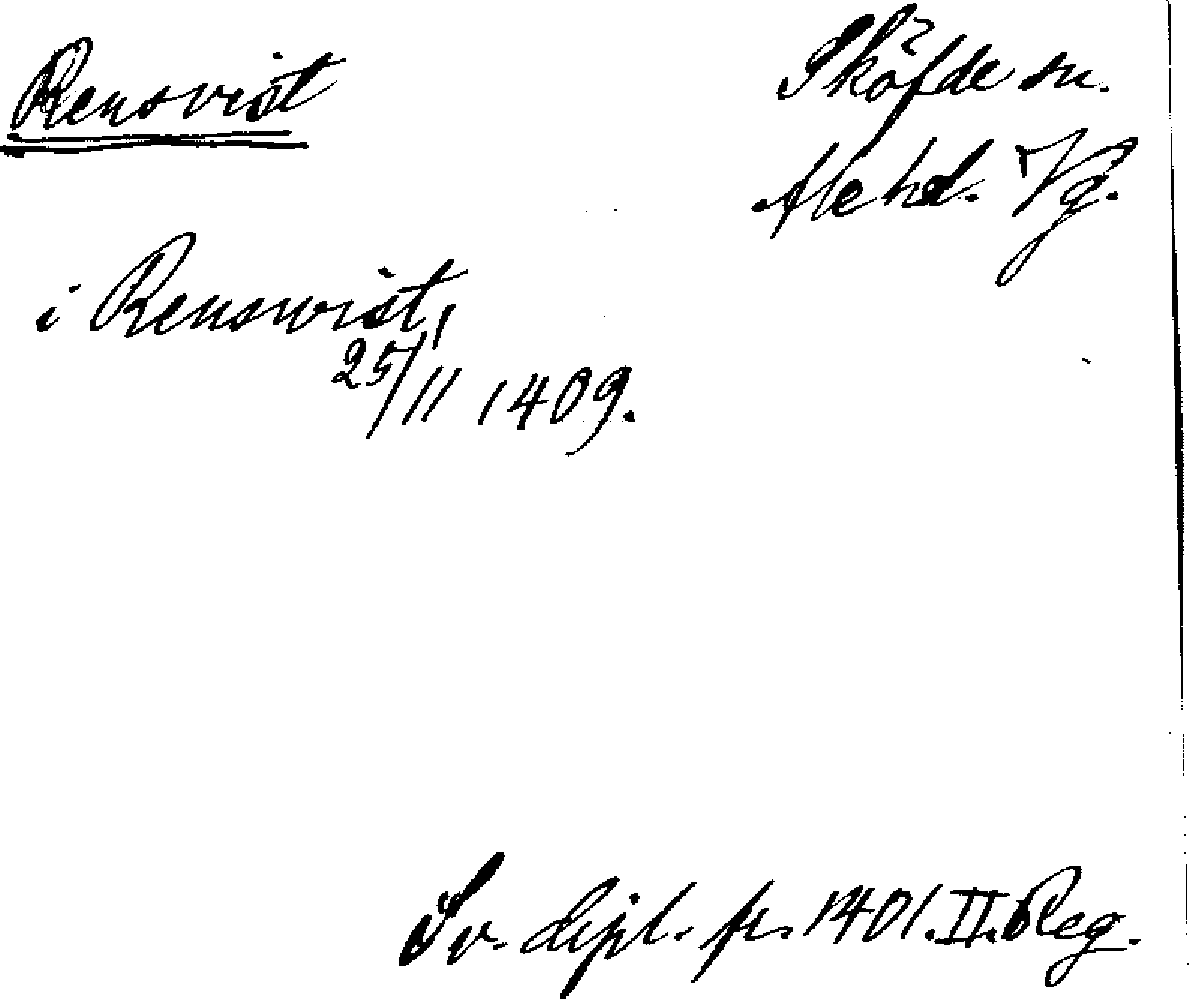 Rensvist
Sköfde sn.
Ale hd. Vg.
i Renswist,
25/11 1409.
Sv. dipl. fr. 1401. II. Reg.